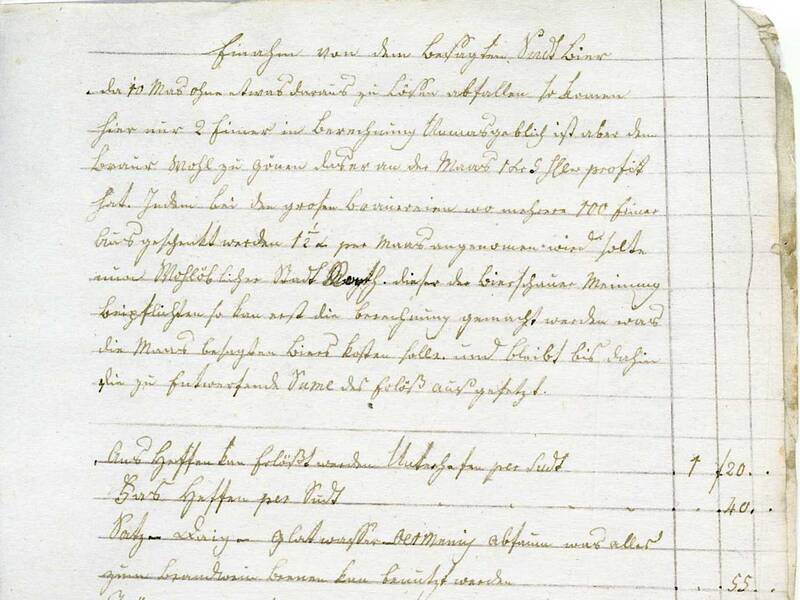 Einahm von dem besagten Sudt Bier
da 10 Mas ohne etwas daraus zu Lößen abfallen so komen
hier nur 2 Eimer in berechnung Unmasgeblich ist aber dem
braur Wohl zu gönen das er an der Maas 1 kr 5 Hllr profit
hat. Indem bei den grosen brauereien wo mehrere 100 Eimer
ausgeschenkt werden 1½ per Maas angenomen wird solte
nun Wohllöblicher Stadt dieser der bierschauer Meinung
beipflichten so kan erst die berechnung gemacht werden was
die Maas besagten biers kosten solle. und bleibt bis dahin
die zu Entwerfende Sume des Erlöß aus gesetzt.
Aus Heffen kan Erlößt werden Unterhefen per Sudt 1 f 20
Das Heffen per Sudt 40
Satz - Daig - glatwasser abfaum was alles
zum brandwein brenen kan benutzt werden 55